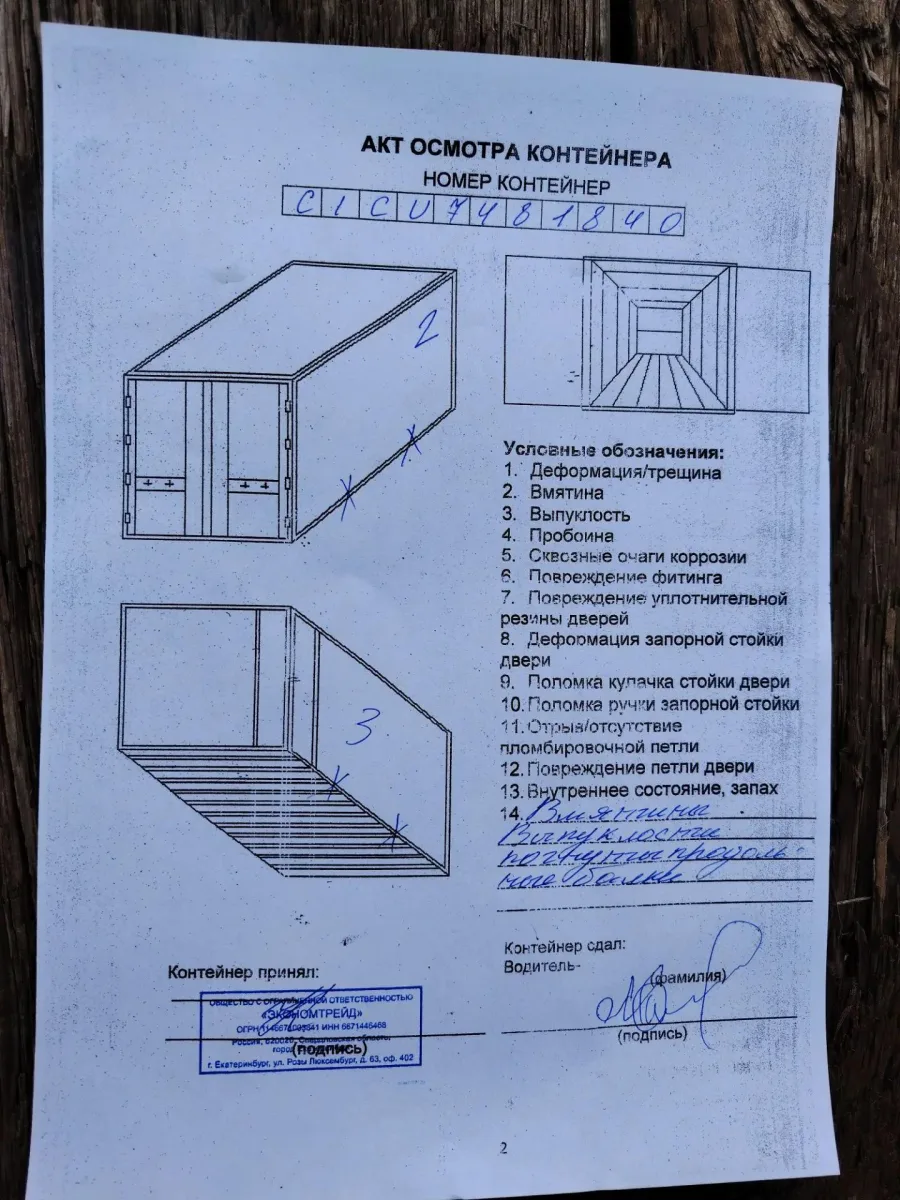 АКТ ОСМОТРА КОНТЕЙНЕРА
НОМЕР КОНТЕЙНЕР
CICU7481840
2
3
Условные обозначения:
1. Деформация/трещина
2. Вмятина
3. Выпуклость
4. Пробоина
5. Сквозные очаги коррозии
6. Повреждение фитинга
7. Повреждение уплотнительной
резины дверей
8. Деформация запорной стойки
двери
9. Поломка кулачка стойки двери
10. Поломка ручки запорной стойки
11. Отрыв/отсутствие
пломбировочной петли
12. Повреждение петли двери
13. Внутреннее состояние, запах
14. Вмятины
Выпуклости
погнуты продоль-
ные балки
Контейнер принял:
ОБЩЕСТВО С ОГРАНИЧЕННОЙ ОТВЕТСТВЕННОСТЬЮ
«ЭКОНОМТРЕЙД»
ОГРН ИНН
Россия, Свердловская область,
город
(подпись)
г. Екатеринбург, ул. Розы Люксембург, д. 63, оф. 402
Контейнер сдал:
Водитель-
(фамилия)
(подпись)
2